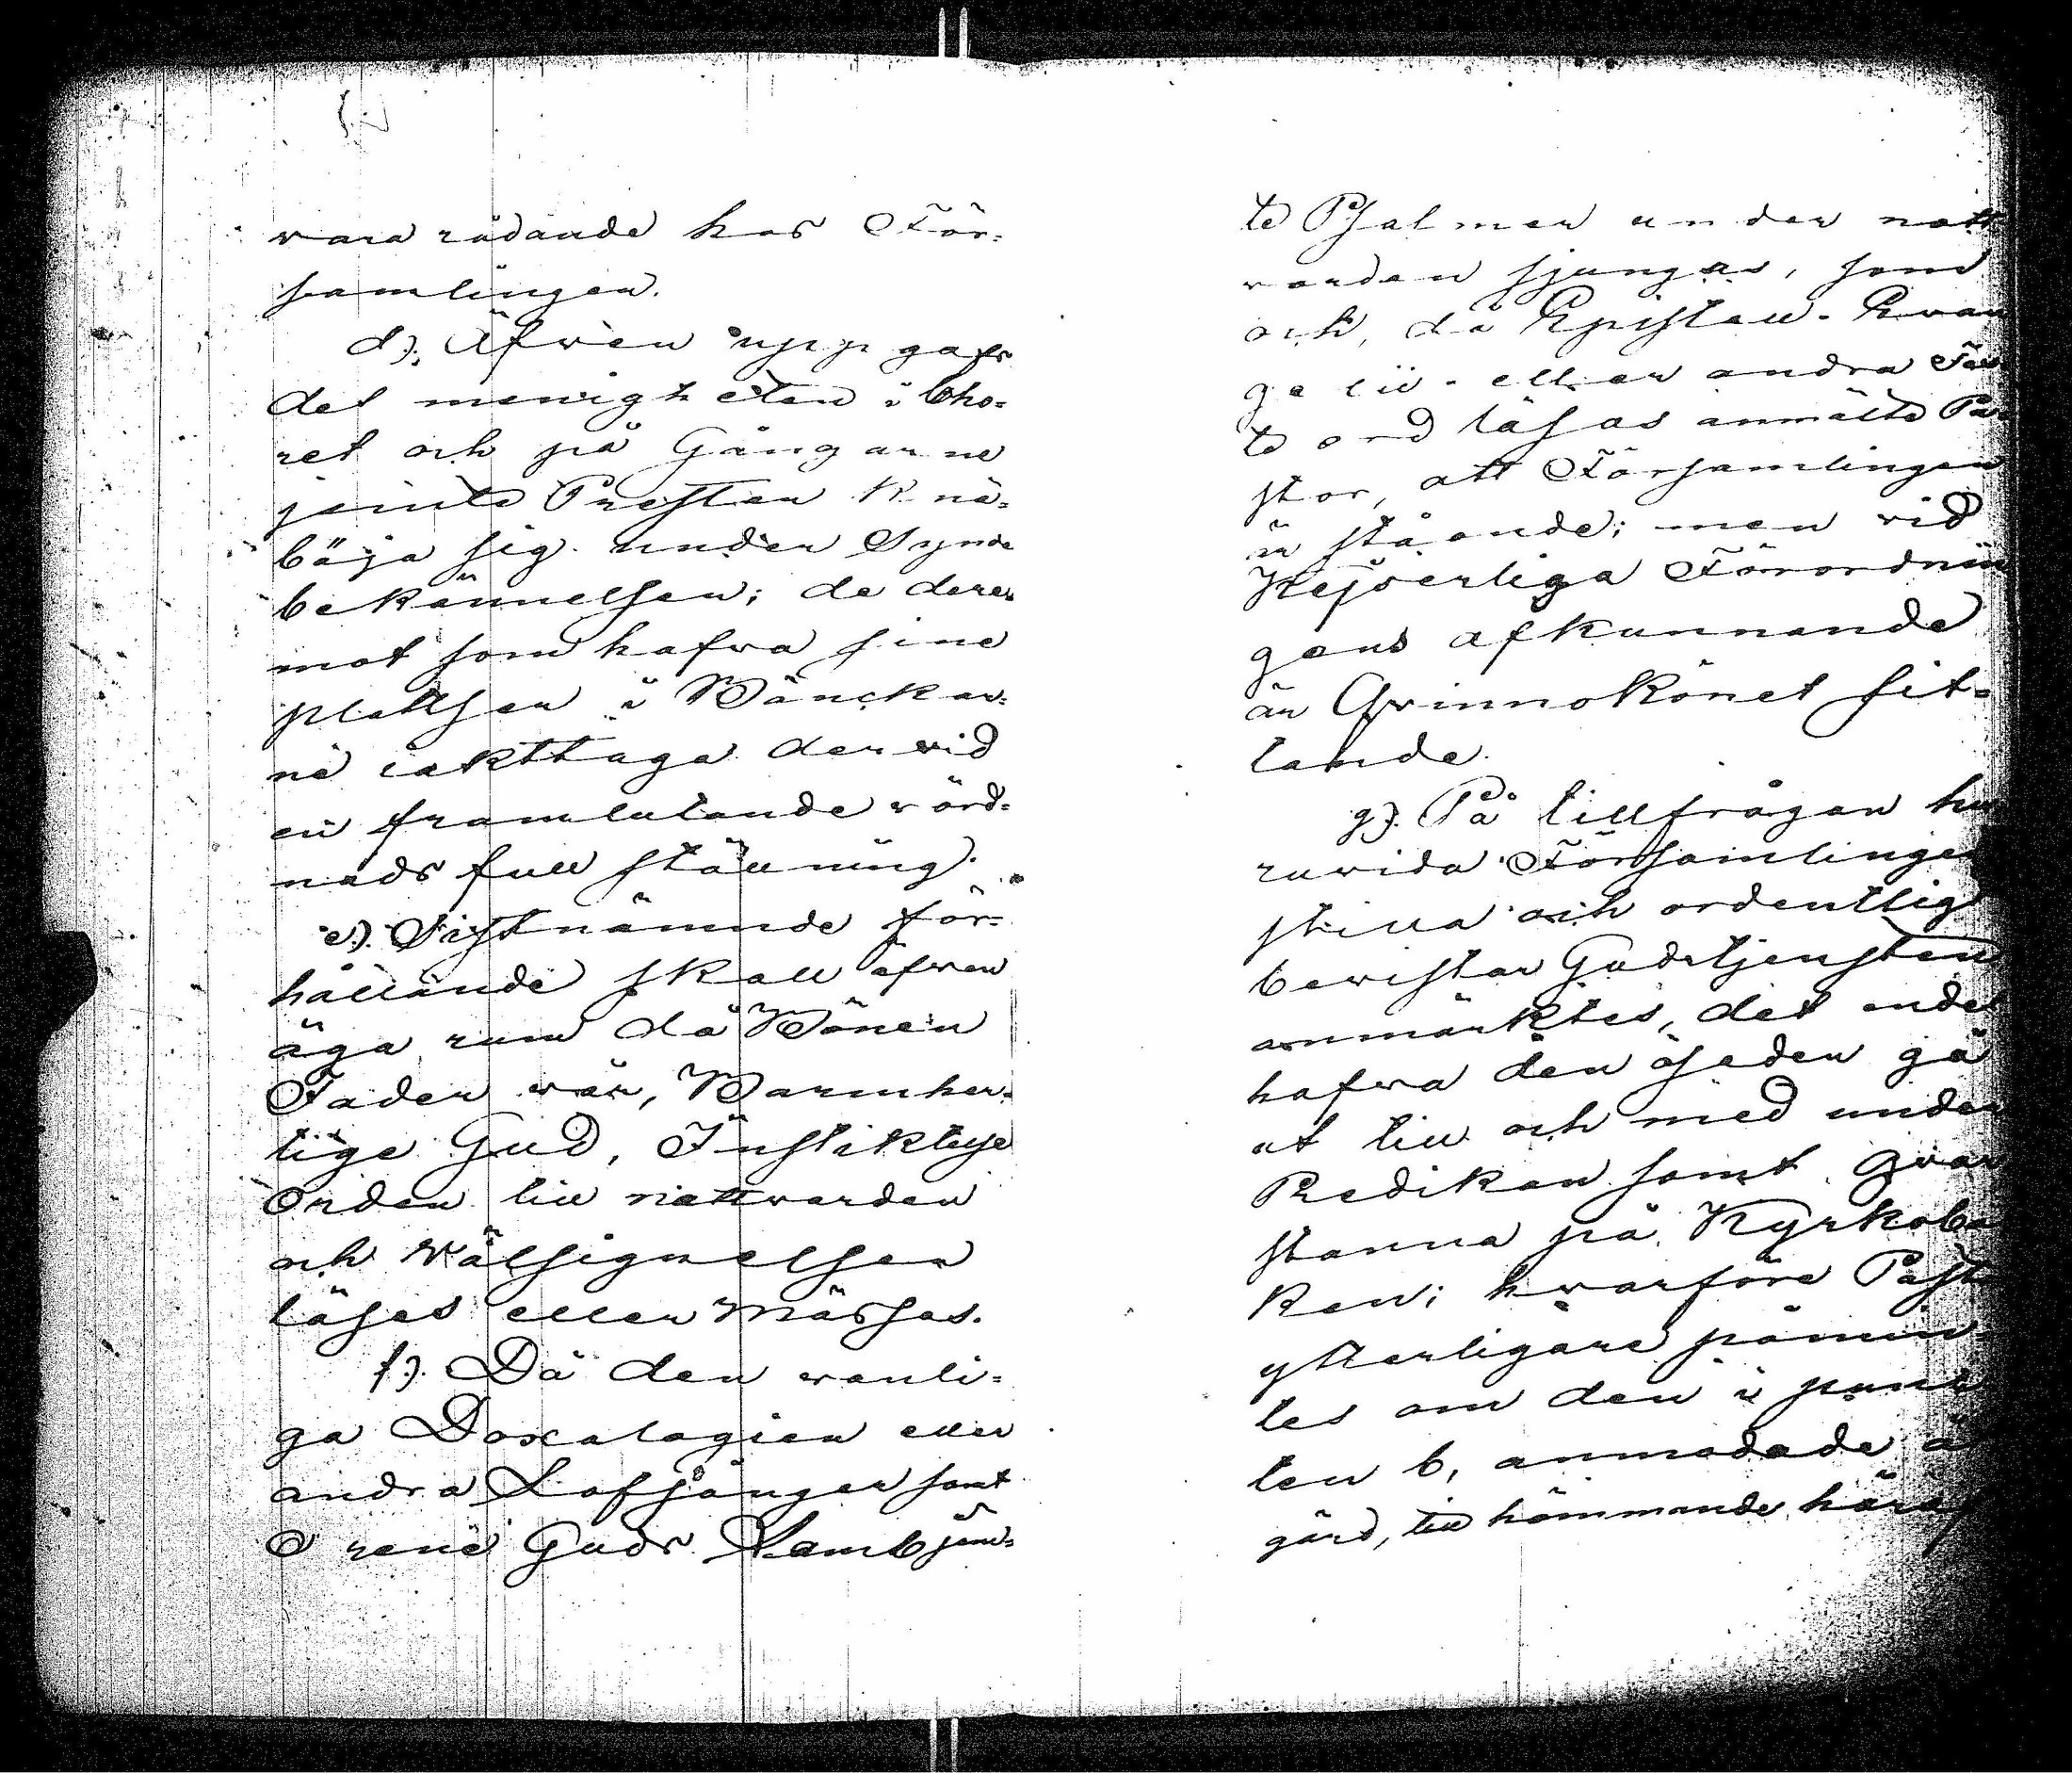 wara rådande hos För=
samlingen.
d). Äfwen uppgafs
det menigheten i Cho=
ret och på Gångarne
jemte Presten Knä=
böja sig under Synda
bekännelsen; de derе
mot som hafwa sine
plattser i Bänckar=
ne iakttaga derwid
en framlutande wörd=
nads full ställning.
e). Sistnämnde för=
hållande skall äfwen
äga rum då Bönen
Fader wår, Barmher=
tige Gud, Instiktelse
Orden till nattwarden
och Wälsignelsen
läses eller Mässas.
f). Då den wanli=
ga Doxologien eller
andra Lofsånger samt
O rene Guds Lamb jem=
te Psalmer under natt
warden sjunges, som
och, då Epistell- Ewan
gelii- eller andra Tex
te ord läsas anmälte Pa
stor, att Församlingen
är stående; men wid
Kejserliga Förordnin
gens afkunnande
är Qwinnokönet sit=
tande.
g). På tillfrågan hu
ruwida Församlingen
stilla och ordentligt
bewistar Gudstjensten
anmärktes, det endel
hafwa den oseden gå
ut till och med under
Predikan samt qwar
stanna på Kyrkoba
ken; hwarföre Past
ytterligare påmin=
tes om den i punk
ten b, anmodade å
gärd, till hämmande häraf